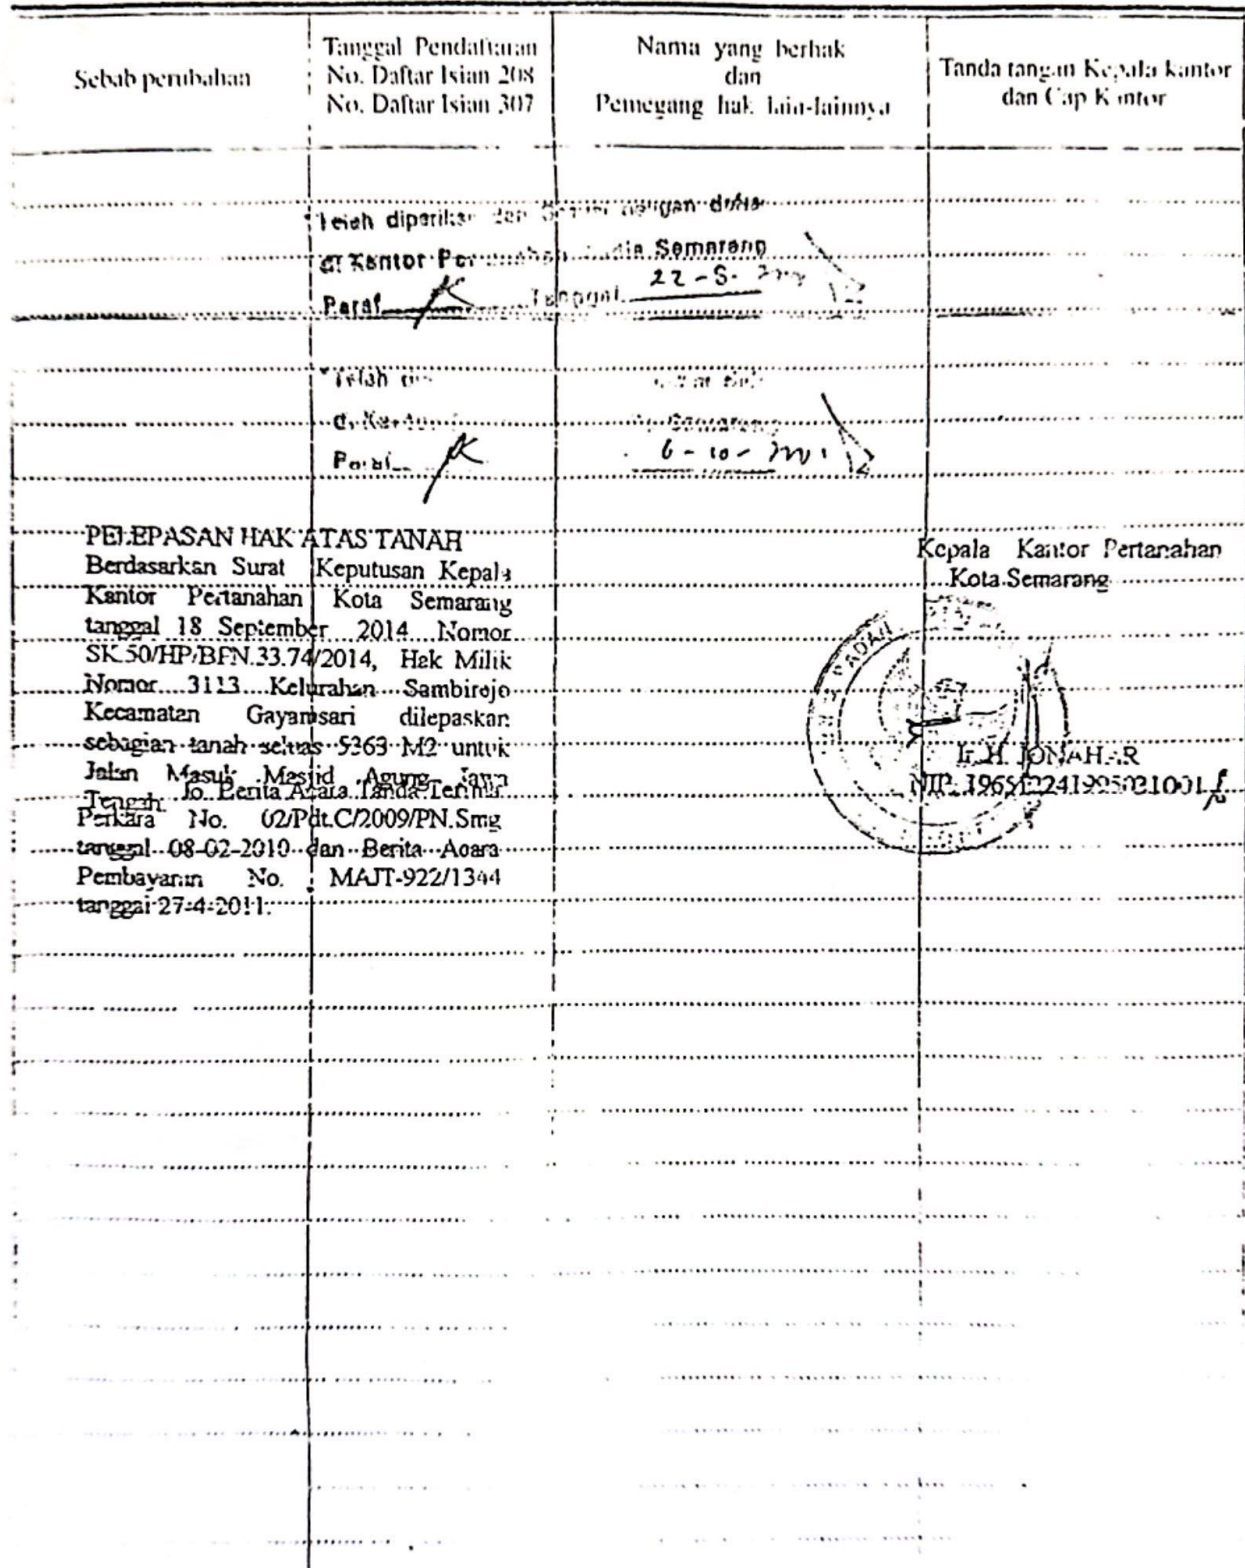 Sebab perubahan
Tanggal Pendaftaran
No. Daftar Isian 208
No. Daftar Isian 307
Nama yang berhak
dan
Pemegang hak lain-lainnya
Tanda tangan Kepala kantor
dan Cap Kantor
Telah diperiksa dan dengan
di Kantor Semarang
Paraf Tanggal 22-8-
Telah
Semarang
Paraf 6-10-
PELEPASAN HAK ATAS TANAH
Berdasarkan Surat Keputusan Kepala
Kantor Pertanahan Kota Semarang
tanggal 18 September 2014 Nomor
SK.50/HP/BPN.33.74/2014, Hak Milik
Nomor 3113 Kelurahan Sambirejo
Kecamatan Gayamsari dilepaskan
sebagian tanah seluas 5363 M2 untuk
Jalan Masuk Masjid Agung Jawa
Tengah Jo. Berita Acara Tanda Terima
Perkara No. 02/Pdt.C/2009/PN.Smg
tanggal 08-02-2010 dan Berita Acara
Pembayaran No. MAJT-922/1344
tanggal 27-4-2011.
Kepala Kantor Pertanahan
Kota Semarang
Ir. H. JONAHAR
NIP.